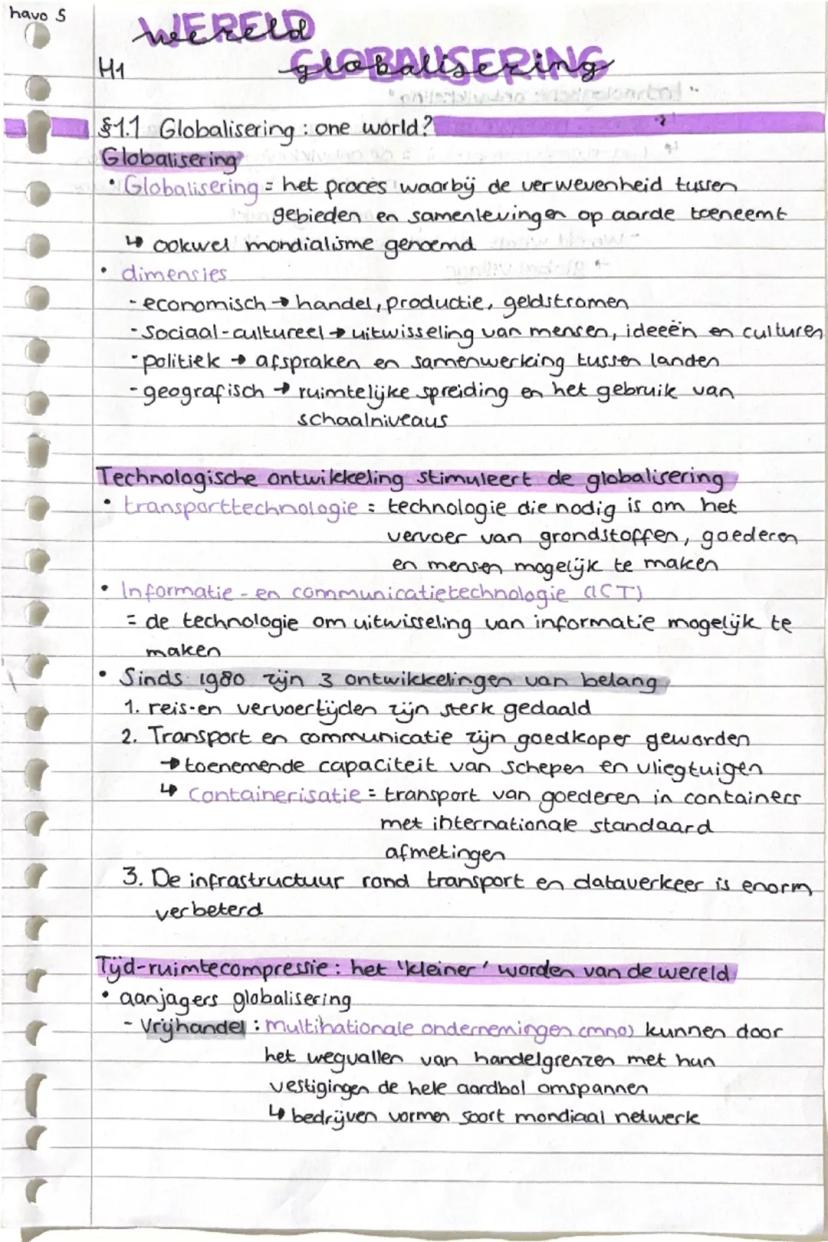 havo 5
WERELD
wereld
GLOBALISERING
H1 globalisering
§1.1 Globalisering : one world?
Globalisering
• Globalisering = het proces waarbij de verwevenheid tussen
gebieden en samenlevingen op aarde toeneemt
↳ ookwel mondialisme genoemd
• dimensies
- economisch → handel, productie, geldstromen
- Sociaal-cultureel → uitwisseling van mensen, ideeën en culturen
- politiek → afspraken en samenwerking tussen landen
- geografisch → ruimtelijke spreiding en het gebruik van
schaalniveaus
Technologische ontwikkeling stimuleert de globalisering
• transporttechnologie = technologie die nodig is om het
vervoer van grondstoffen, goederen
en mensen mogelijk te maken
• Informatie- en communicatietechnologie (ICT)
= de technologie om uitwisseling van informatie mogelijk te
maken
• Sinds 1980 zijn 3 ontwikkelingen van belang
1. reis-en vervoertijden zijn sterk gedaald
2. Transport en communicatie zijn goedkoper geworden
→ toenemende capaciteit van schepen en vliegtuigen
↳ Containerisatie = transport van goederen in containers
met internationale standaard
afmetingen
3. De infrastructuur rond transport en dataverkeer is enorm
verbeterd
Tijd-ruimtecompressie : het 'kleiner' worden van de wereld
• aanjagers globalisering
- Vrijhandel : Multinationale ondernemingen (mno) kunnen door
het wegvallen van handelgrenzen met hun
vestigingen de hele aardbol omspannen
↳ bedrijven vormen soort mondiaal netwerk